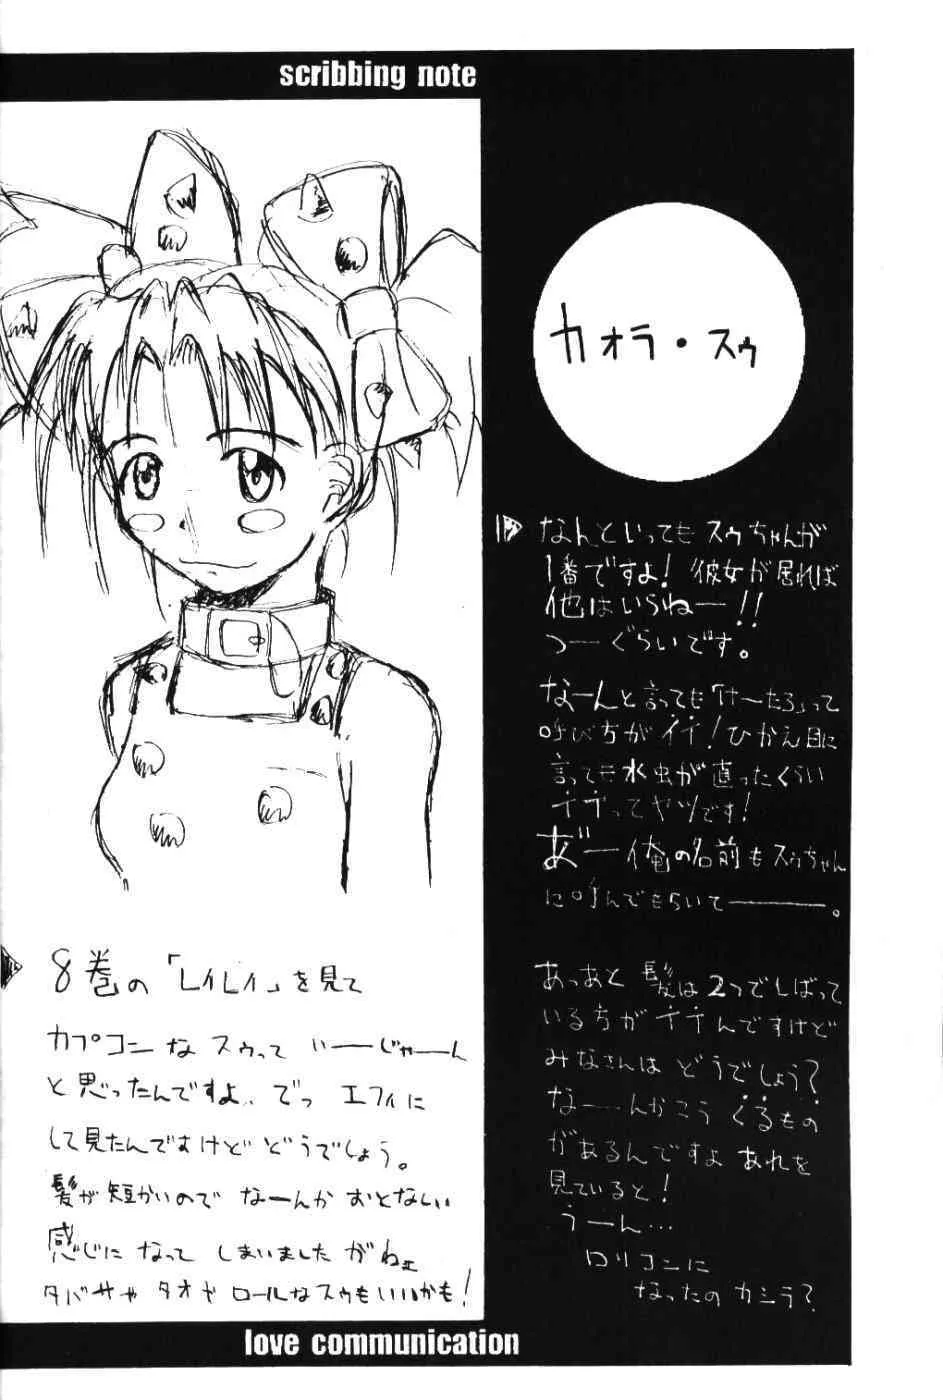 scribbing note
カオラ・スゥ
なんといってもスゥちゃんが
1番ですよ！彼女が居れば
他はいらねー！！
つーぐらいです。
なーんと言っても「けーたろ」って
呼び方がイイ！ひかえ目に
言っても水虫が直ったくらい
イイってヤツです！
あ゛ー俺の名前もスゥちゃん
に呼んでもらいてー。
あっあと髪は2つでしばって
いる方がイイんですけど
みなさんはどうでしょう？
なーんかこうくるもの
があるんですよあれを
見ていると！
うーん…
ロリコンに
なったのカシラ？
8巻の「レイレイ」を見て
カプコンなスゥっていーじゃーん
と思ったんですよ、でっエフィに
して見たんですけどどうでしょう。
髪が短かいのでなーんかおとなしい
感じになってしまいましたがねェ
タバサやタオやロールなスゥもいいかも！
love communication